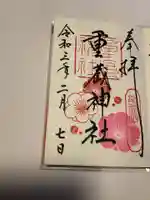 奉拝
重蔵神社
令和三年二月七日